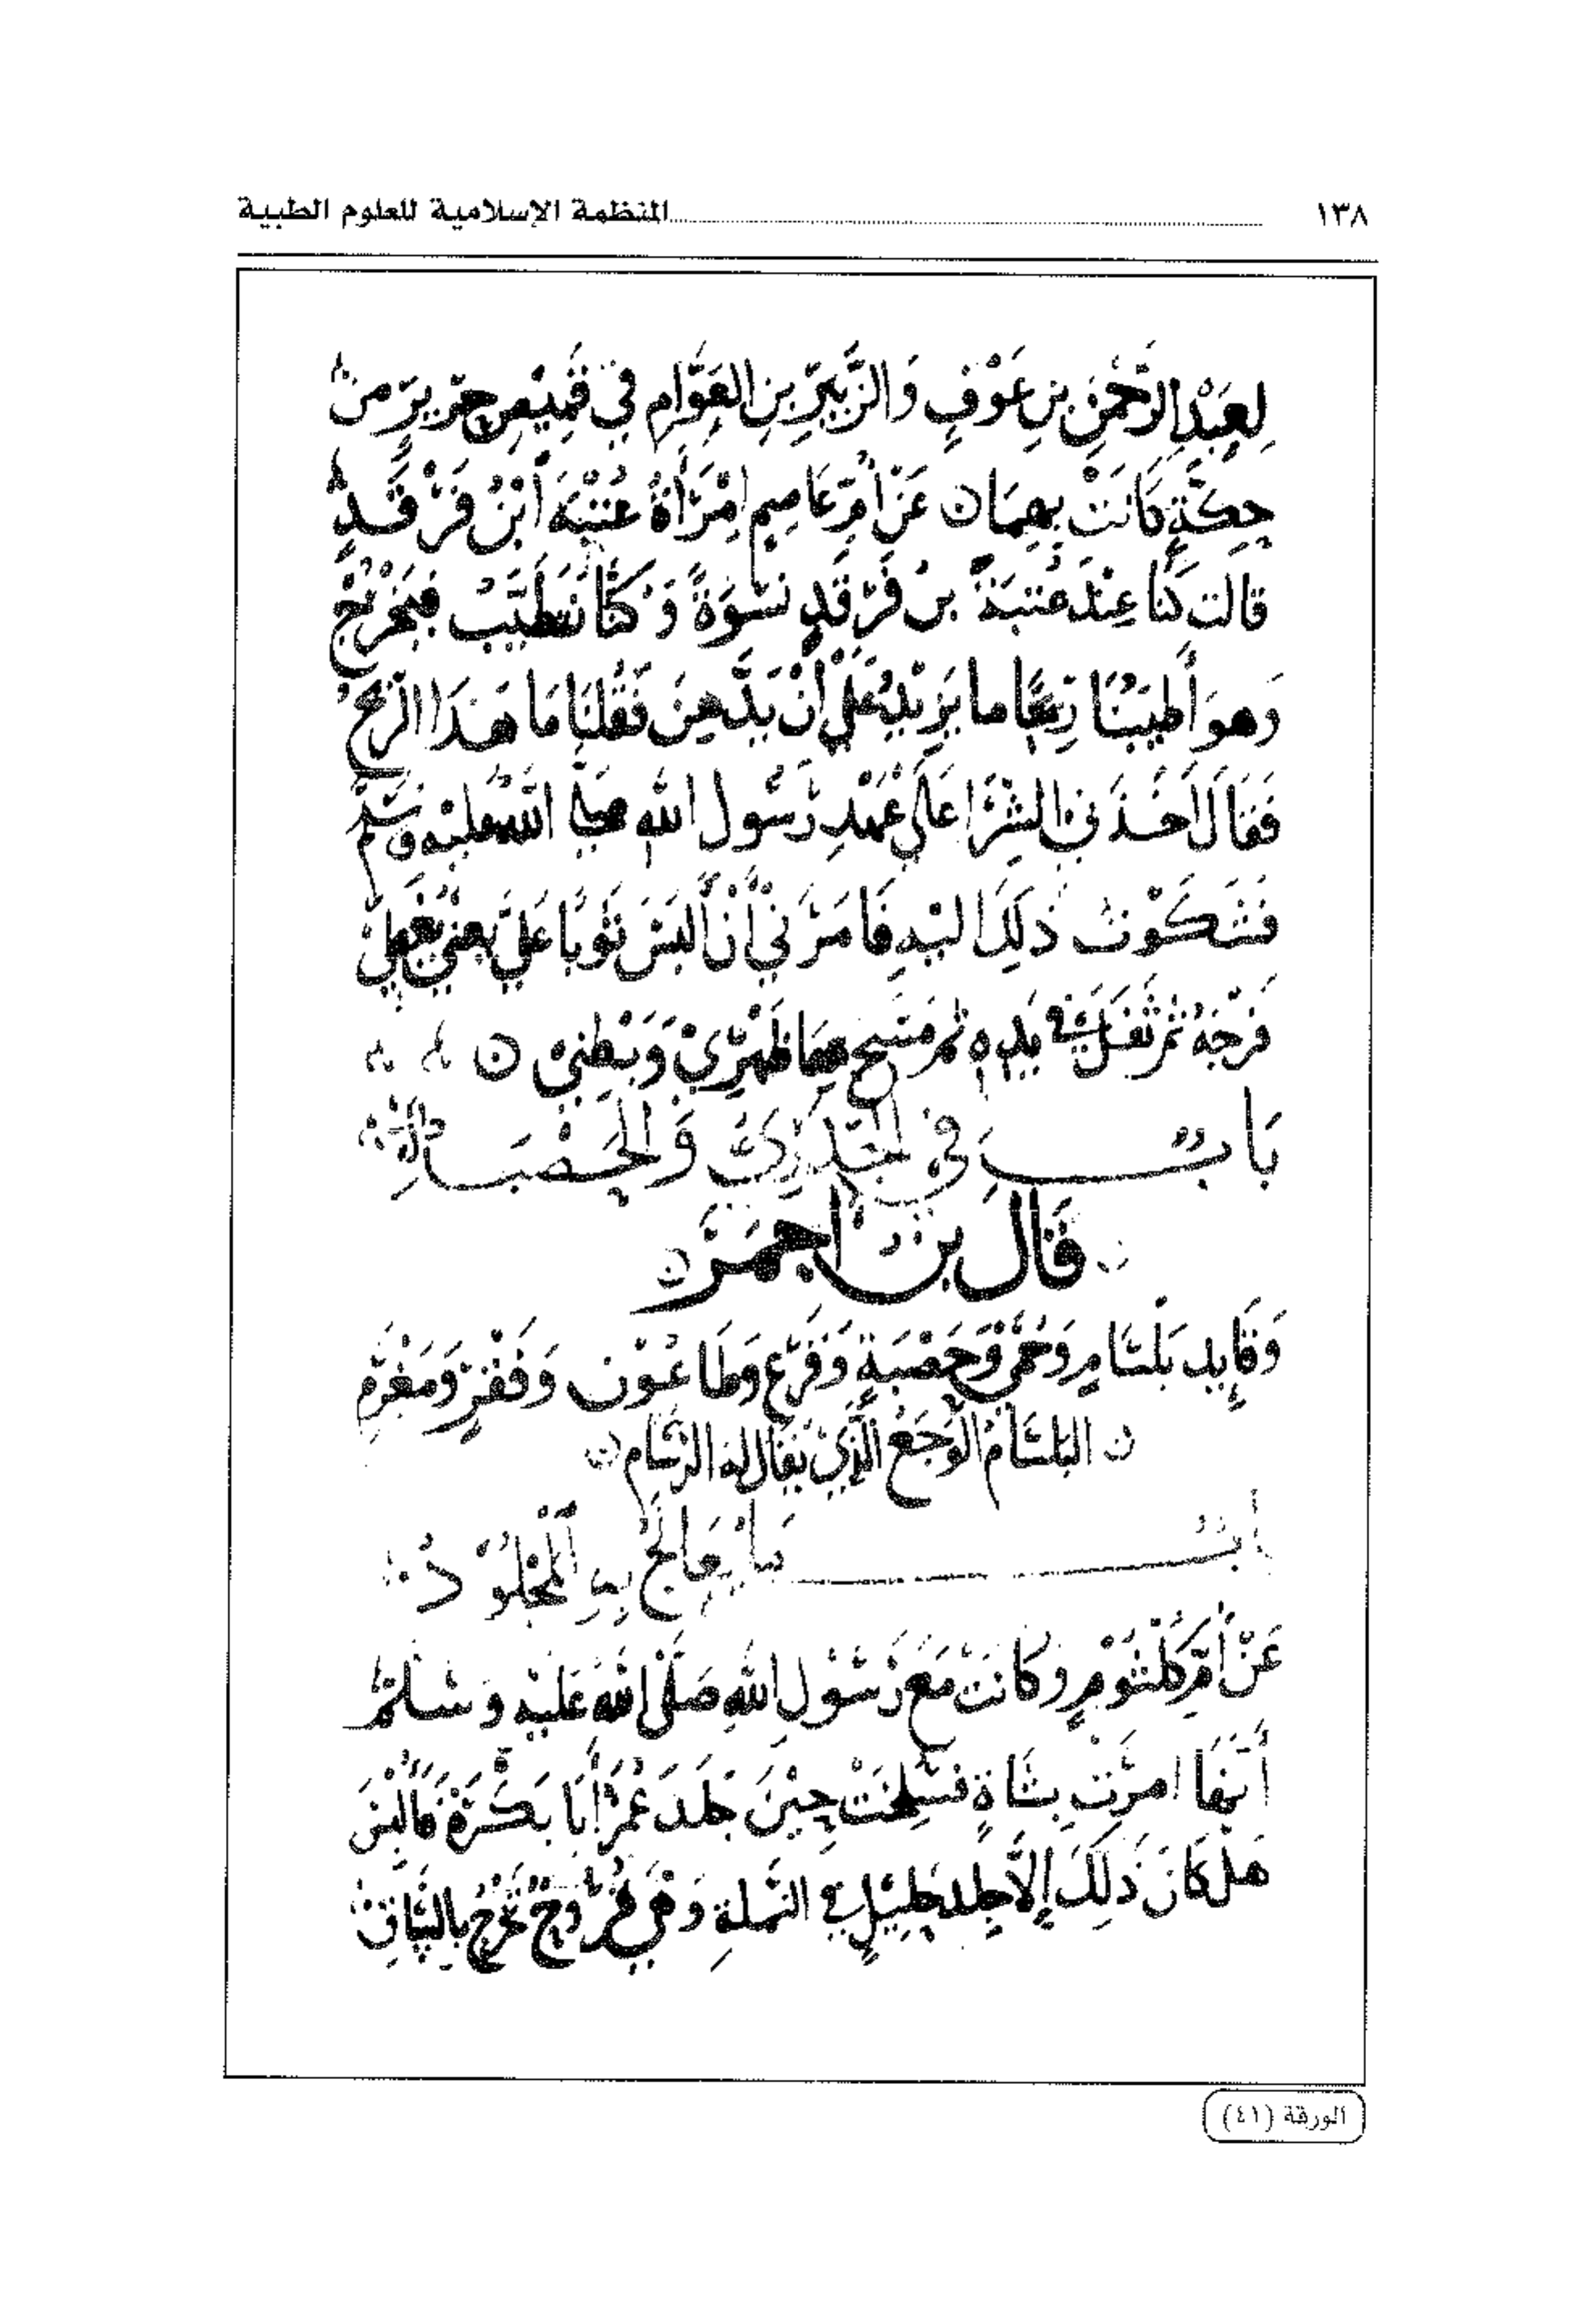 ١٣٨ المنظمة الإسلامية للعلوم الطبية
لِعَبْدِ الرَّحْمَنِ بنِ عَوْفٍ وَالزُّبَيْرِ بنِ العَوَّامِ فِي قَمِيْصِ حَرِيرٍ مِنْ
حِكَّةٍ كَانَتْ بِهِمَا ن عَنْ أُمِّ عَاصِمٍ امْرَأَةُ عُتْبَةَ ابْنُ فَرْقَدٍ
قالت كنا عِنْدَ عُتبَةَ بن فَرْقَدٍ نسْوَةً وَكُنَّا نَتَطَيَّبُ فيَخْرُجُ
وَهوَ أَطيبُنَا رِيحًا ما يَزِيْدُ عَلَى أَنْ يَدَّهِنَ فَقُلنَا مَا هَذَا الرِّيحُ
فَقَالَ أَخَذَنِي الشَّرَا عَلَى عَهْدِ رَسُول اللهِ صَلَّى اللهُ عليْهِ وَسَلَّم
فَشَكَوْتُ ذَلِكَ اليْهِ فَامَرَنِي أنْ أَلبَسَ ثَوْبًا عَلَى يعْنِي
فَرْجَهُ ثمَّ تَفَلَ فِي يَدِه ثم مَسَح بهِمَا ظَهْرِيْ وَبَطنِيْ ن
بَابٌ فِي الجُدَرِيِّ وَالحَصْبَةِ
قَال بن احمَرَ ن
وَقَايِد بَلْسَامٍ وَحُمَّى وَحَصْبَةٍ وَقَرْعٍ وطَاعُوْن وَفَقْرٍ وَمَغْرَمِ
ن البَلسَامُ الوَجَعُ الَّذِيْ يقَال لهُ البرْسَام ن
بابٌ مَا يُعَالَجُ بِهِ المَجْلُوْدُ
عَنْ أُمِّ كُلْثُوْمٍ وكَانَتْ مَعَ رَسُوْلِ اللهِ صَلَّى اللهُ عَليْهِ وَسَلَّمَ
أَنَّهَا امرَت بِشَاةٍ فسُلِخَتْ حِيْنَ جَلَدَ عُمَرُ أَبَا بَكْرَةَ
هَلْ كَانَ ذَلِكَ إِلاَّ النَّملةِ وَهِيَ قُرُوْحٌ تَخْرُجُ
الورقة (٤١)